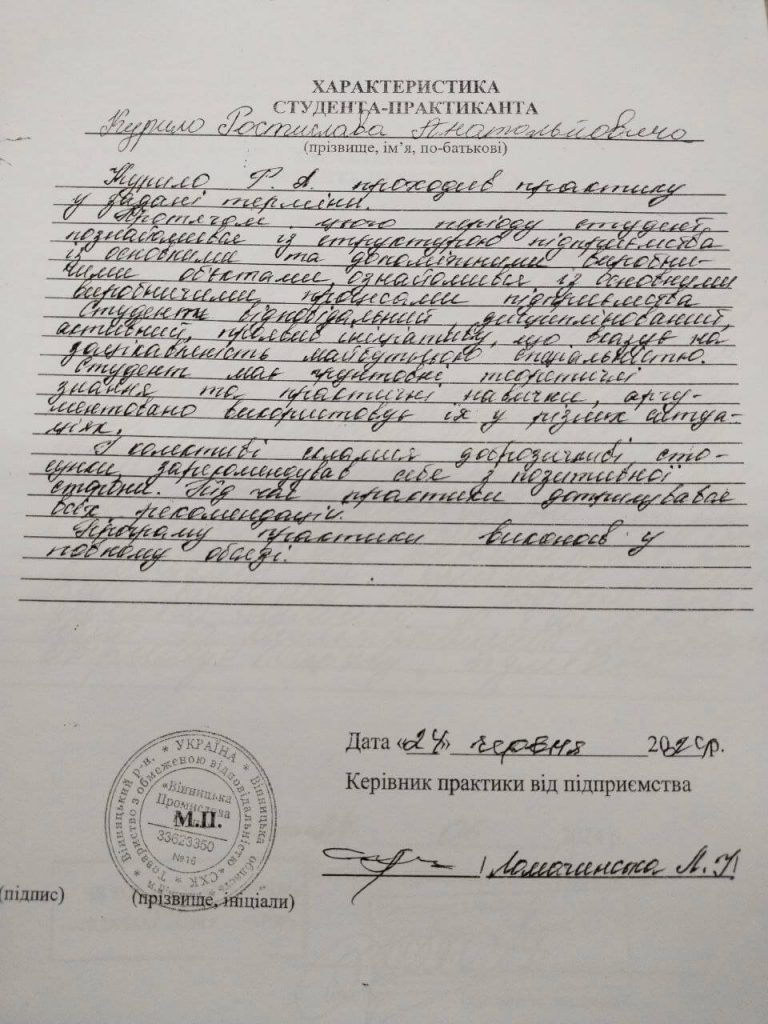 ХАРАКТЕРИСТИКА
СТУДЕНТА-ПРАКТИКАНТА
Курило Ростислава Анатолійовича
(прізвище, ім’я, по-батькові)
Курило Р. А. проходив практику
у задані терміни.
Протягом цього періоду студент
познайомився із структурою підприємства
із основними та допоміжними виробни-
чими об'єктами, ознайомився із основними
виробничими процесами підприємства
Студент відповідальний, дисциплінований,
активний, проявив ініціативу, що вказує на
зацікавленість майбутньою спеціальністю.
Студент має ґрунтовні теоретичні
знання та практичні навички, аргу-
ментовано використовує їх у різних ситуа-
ціях.
У колективі склалися доброзичливі сто-
сунки, зарекомендував себе з позитивної
сторони. Під час практики дотримувався
всіх рекомендацій.
Програму практики виконав у
повному обсязі.
Дата «24» червня 202 р.
Керівник практики від підприємства
Ломачинська Л.
(підпис) (прізвище, ініціали)
М.П.
* УКРАЇНА * Вінницька область * Вінницький р-н.
Товариство з обмеженою відповідальністю «СХК
«Вінницька
Промислова
33623350
№16